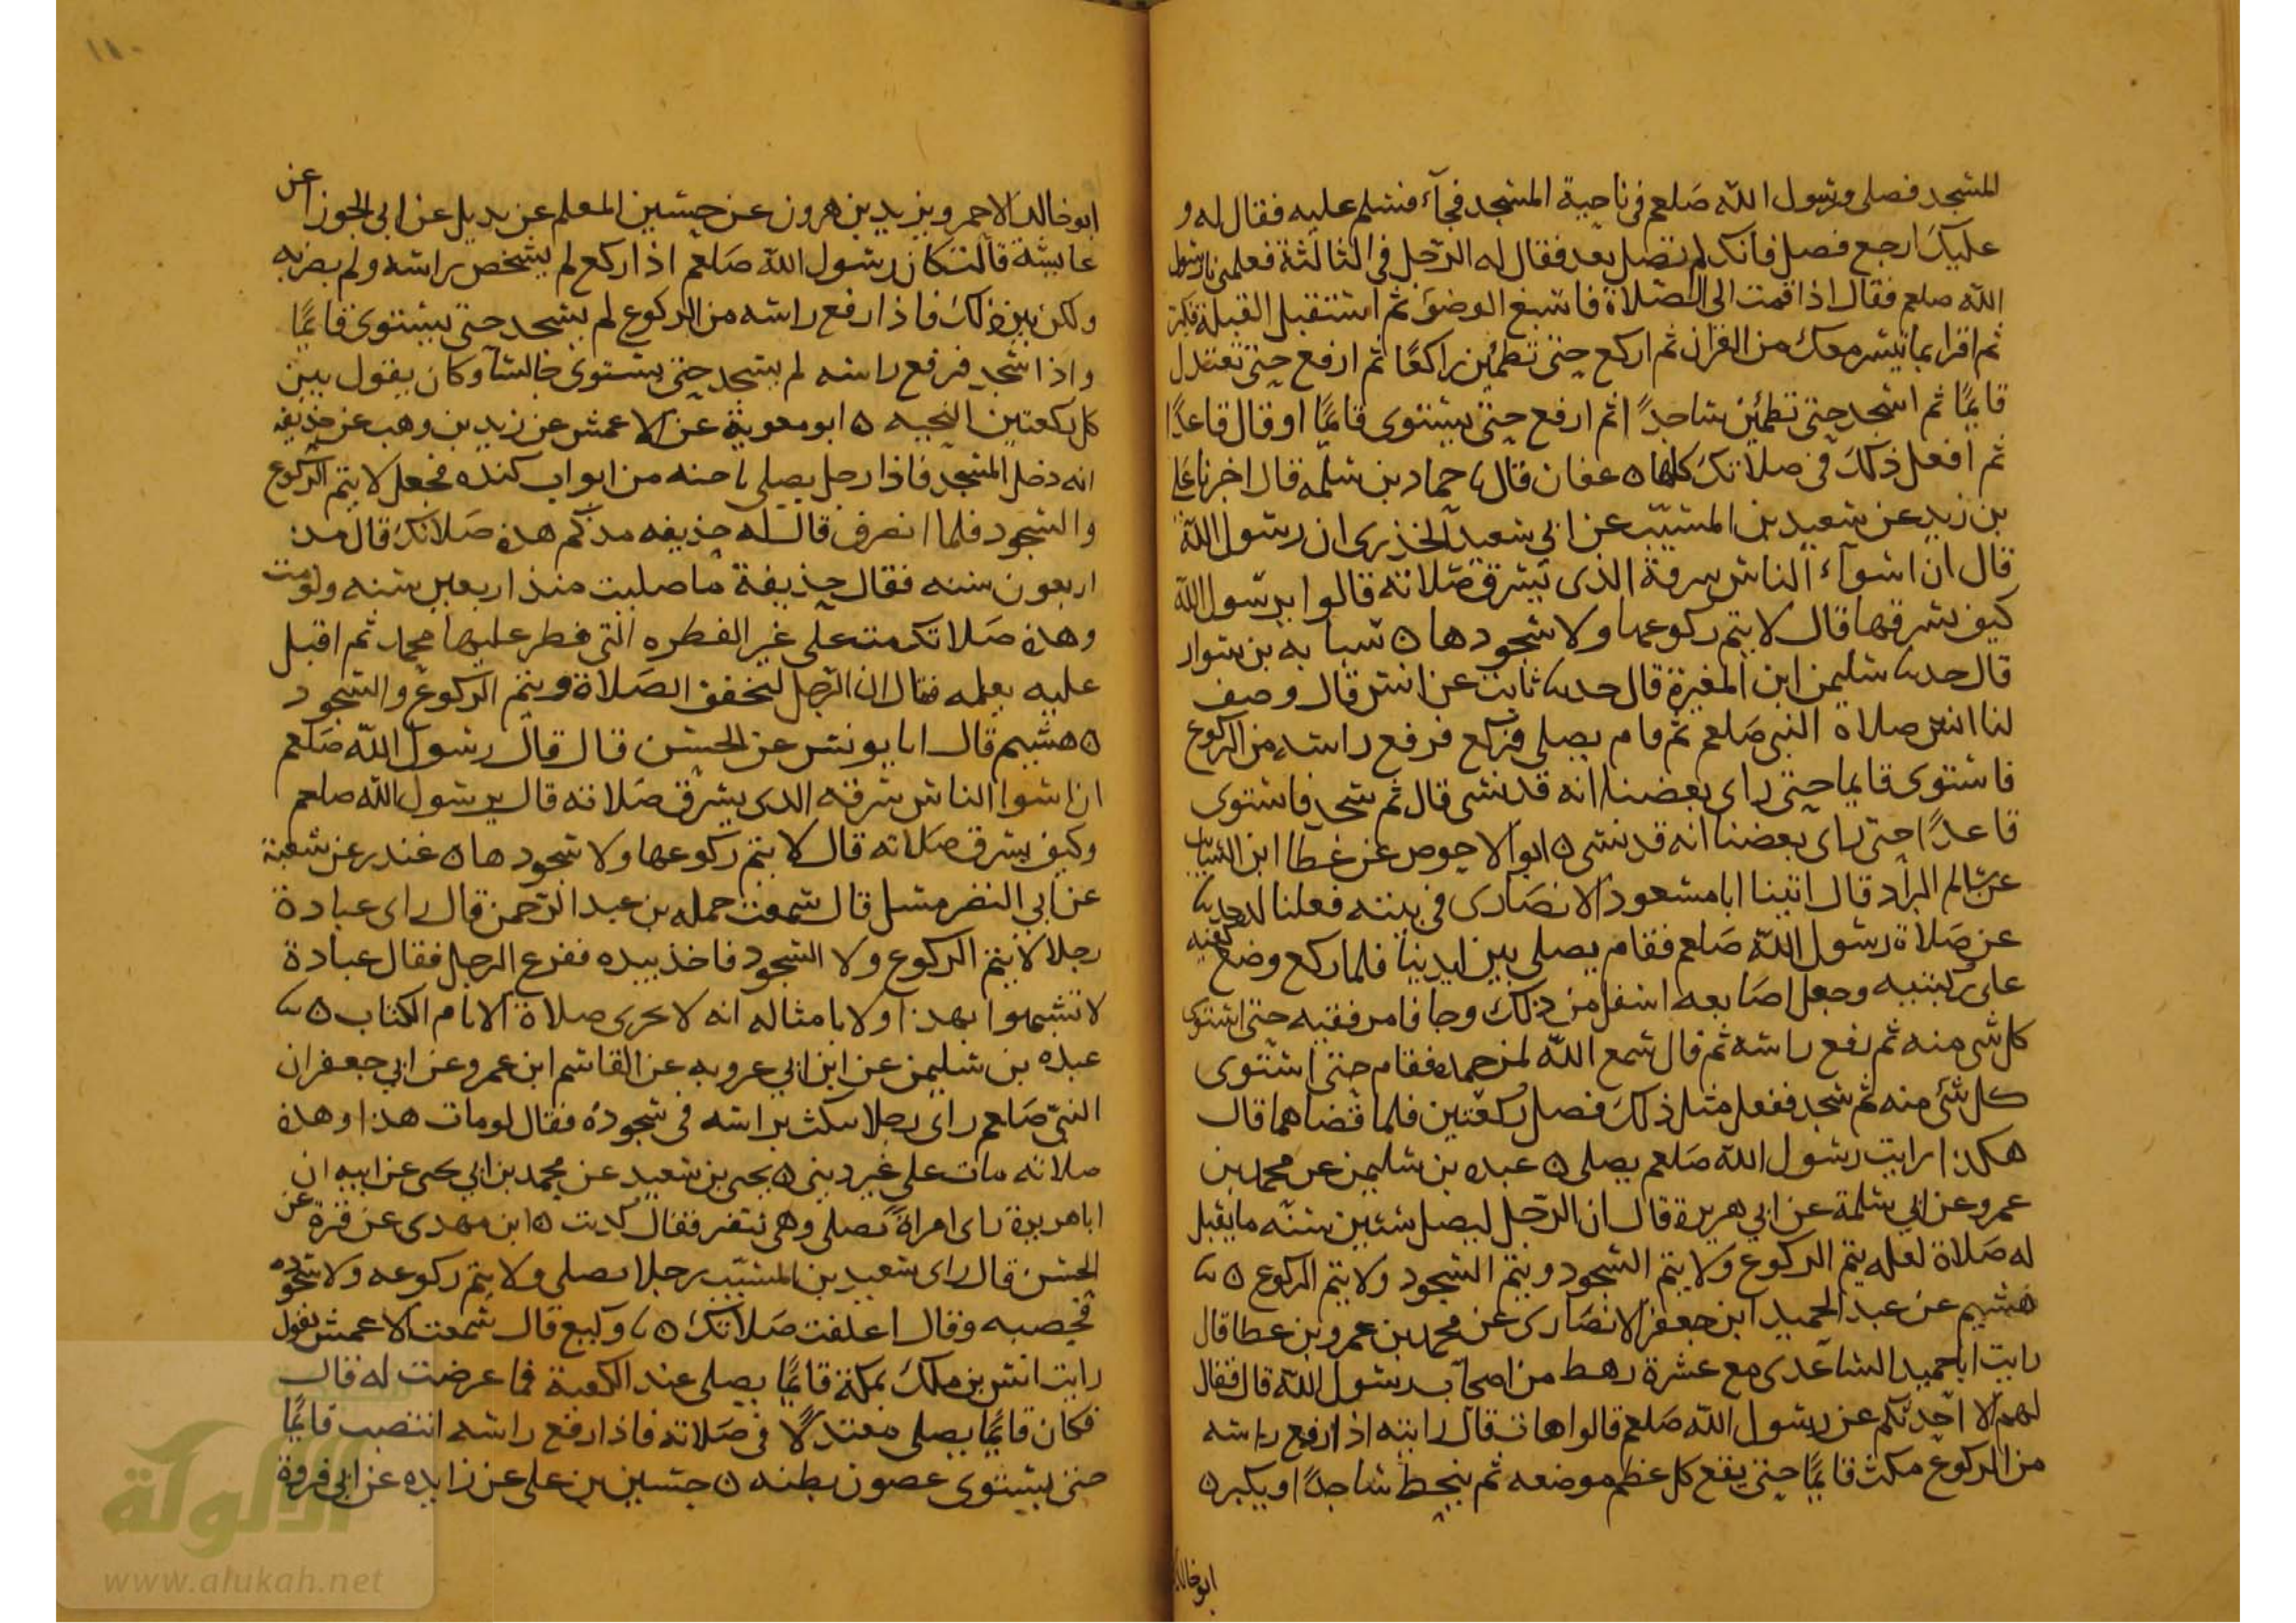 المسجد فصلى ورسول الله صلعم في ناحية المسجد فجآء فسلم عليه فقال له و
عليك ارجع فصل فانك لم تصل بعد فقال له الرجل في الثالثة فعلمني يا رسول
الله صلعم فقال اذا قمت الى الصلاة فاسبغ الوضوء ثم استقبل القبلة فكبر
ثم اقرا بما تيسر معك من القران ثم اركع حتى تطمئن راكعًا ثم ارفع حتى تعتدل
قايمًا ثم اسجد حتى تطمئن ساجدًا ثم ارفع حتى يستوى قايمًا او قال قاعدًا
ثم افعل ذلك في صلاتك كلها ٥ عفان قال نا حماد بن سلمه قال اخبرنا علي
بن زيد عن سعيد بن المسيّب عن ابي سعيد الخذرى ان رسول الله
قال ان اسوآء الناس سرقة الذى يسرق صلاته قالوا يرسول الله
كيف يسرقها قال لا يتم ركوعها ولا سجودها ٥ شبابه بن سوار
قال حدىنا سليمن ابن المغيرة قال حدىنا ثابت عن انس قال وصف
لنا انس صلاة النبي صلعم ثم قام يصلي فركع فرفع راسه من الركوع
فاستوى قايما حتى راى بعضنا انه قد نسى قال ثم سجد فاستوى
قاعدًا حتى راى بعضنا انه قد نسى ٥ ابو الاحوص عن عطا ابن السايب
عن سالم البراد قال اتينا ابا مسعود الانصارى في بيته فقلنا له حدىنا
عن صلاة رسول الله صلعم فقام يصلي بين ايدينا فلما ركع وضع كفيه
على ركبتيه وجعل اصابعه اسفل من ذلك وجافا مرفقيه حتى استوى
كل شى منه ثم رفع راسه ثم قال سمع الله لمن حمده فقام حتى استوى
كل شئ منه ثم سجد ففعل مثل ذلك فصل ركعتين فلما قضاهما قال
هكذا رايت رسول الله صلعم يصلي ٥ عبده بن سليمن عن محمد بن
عمرو عن ابي سلمة عن ابي هريرة قال ان الرجل ليصل ستين سنه ما يقبل
له صلاة لعله يتم الركوع ولا يتم السجود ويتم السجود ولا يتم الركوع ٥ نا
هشيم عن عبد الحميد ابن جعفر الانصارى عن محمد بن عمرو بن عطا قال
رايت ابا حميد الساعدى مع عشرة رهط من اصحاب رسول الله قال فقال
لهم الا احدثكم عن رسول الله صلعم قالوا هات قال رايته اذا رفع راسه
من الركوع مكث قايمًا حتى يقع كل عظم موضعه ثم ينحط ساجدًا ويكبر ٥
ابو خالد
ابو خالد الاحمر ويزيد بن هرون عن حسين المعلم عن بديل عن ابي الجوزا عن
عايشة قالت كان رسول الله صلعم اذا ركع لم يشخص راسه ولم يصوبه
ولكن بين ذلك فاذا رفع راسه من الركوع لم يسجد حتى يستوى قايمًا
واذا سجد فرفع راسه لم يسجد حتى يستوى جالسا وكان يقول بين
كل ركعتين التحيه ٥ ابو معوية عن الاعمش عن زيد بن وهب عن حذيفه
انه دخل المسجد فاذا رجل يصلي ناحيه من ابواب كنده فجعل لا يتم الركوع
والسجود فلما انصرف قال له حذيفه مذ كم هذه صلاتك قال مذ
اربعون سنه فقال حذيفة ما صليت منذ اربعين سنه ولو مت
وهذه صلاتك مت على غير الفطره التي فطر عليها محمد ثم اقبل
عليه يعلمه فقال ان الرجل ليخفف الصلاة ويتم الركوع والسجود
٥ هشيم قال انا يونس عن الحسن قال قال رسول الله صلعم
ان اسوا الناس سرقه الذى يسرق صلاته قال يرسول الله صلعم
وكيف يسرق صلاته قال لا يتم ركوعها ولا سجودها ٥ غندر عن شعبة
عن ابي النضر مسل قال سمعت حمله بن عبد الرحمن قال راى عبادة
رجلا لا يتم الركوع ولا السجود فاخذ بيده ففزع الرجل فقال عبادة
لا تشبهوا بهذا ولا بامثاله انه لا تجزى صلاة الا بام الكتاب ٥ نا
عبده بن سليمن عن ابن ابي عروبه عن القاسم ابن عمرو عن ابي جعفر ان
النبي صلعم راى رجلا ينكث براسه في سجوده فقال لو مات هذا وهذه
صلاته مات على غير ديني ٥ يحيى بن سعيد عن محمد بن ابي يحيى عن ابيه ان
ابا هريرة راى امراة تصلي وهي تنقر فقال كذبت ٥ ابن مهدى عن قرة عن
الحسن قال راى سعيد بن المسيّب رجلا يصلي ولا يتم ركوعه ولا سجوده
فحصبه وقال اغلقت صلاتك ٥ نا وكيع قال سمعت الاعمش يقول
رايت انس بن ملك بمكة قايمًا يصلي عند الكعبة فما عرضت له قال
فكان قايمًا يصلي معتدلًا في صلاته فاذا رفع راسه انتصب قايمًا
حتى يستوى غصون بطنه ٥ حسين بن علي عن زايده عن ابي فروة
الألوكة
www.alukah.net